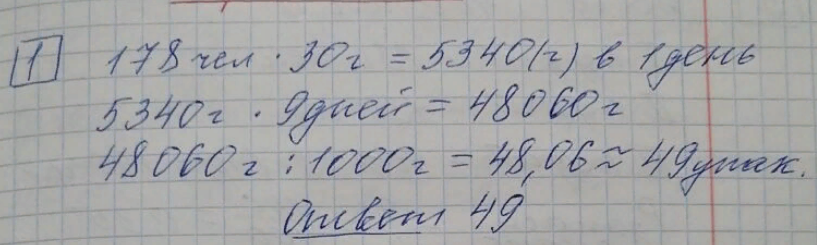 1 178 чел · 30г = 5340(г) в 1 день
5340г · 9дней = 48060г
48060г : 1000г = 48,06 ≈ 49упак.
Ответ 49